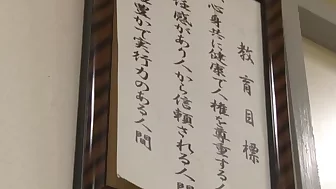 教育目標
心身共に健康で人権を尊重する人
任感があり人から信頼される人間
豊かで実行力のある人間